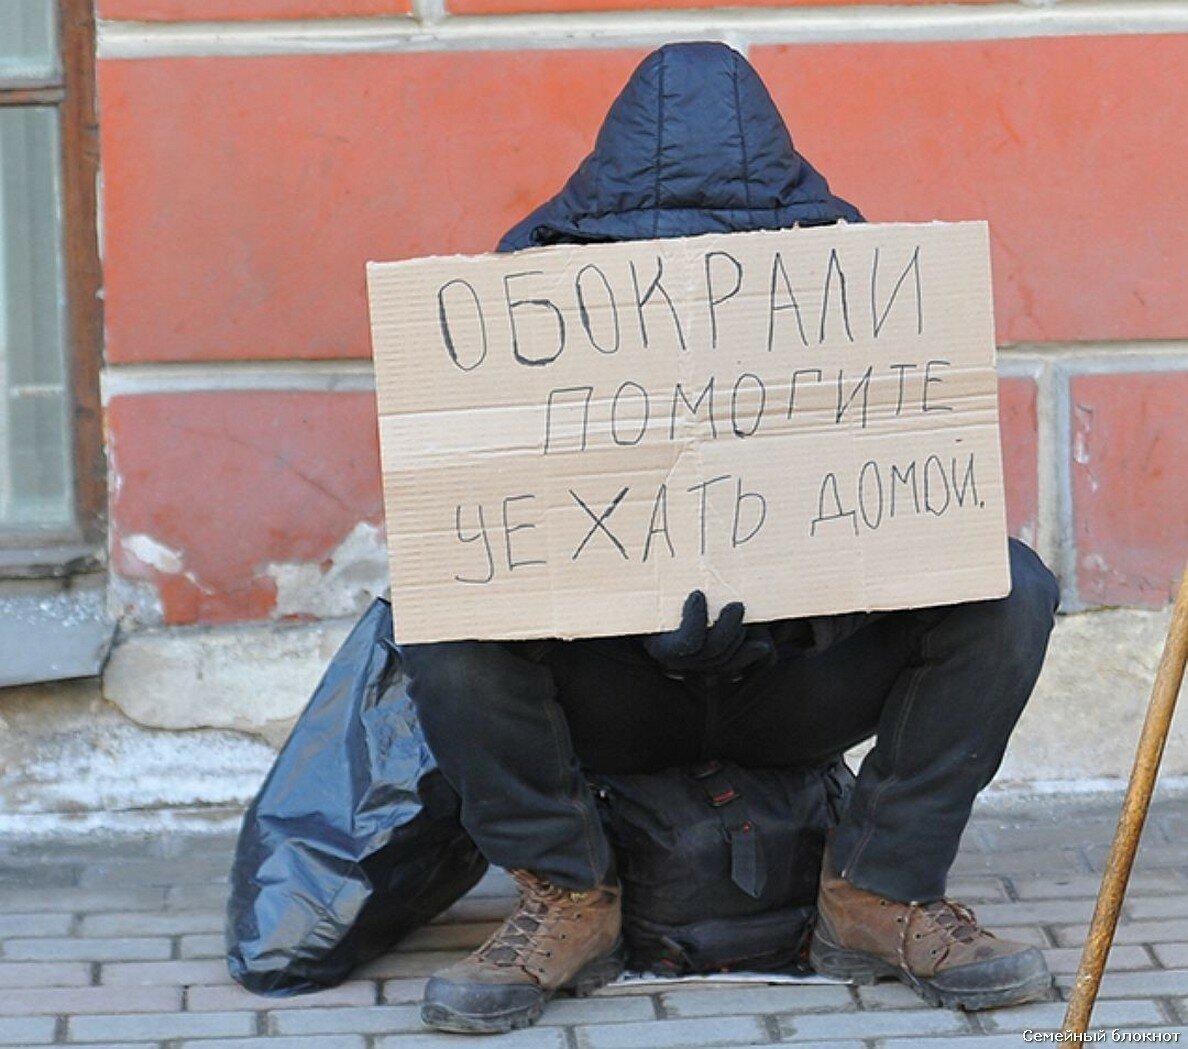 ОБОКРАЛИ
ПОМОГИТЕ
УЕХАТЬ ДОМОЙ.
Семейный блокнот